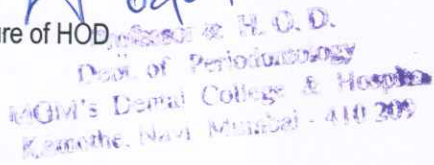 ure of HOD
Professor & H. O. D.
Dept. of Periodontology
MGM's Dental College & Hospital
Kamothe, Navi Mumbai - 410 209